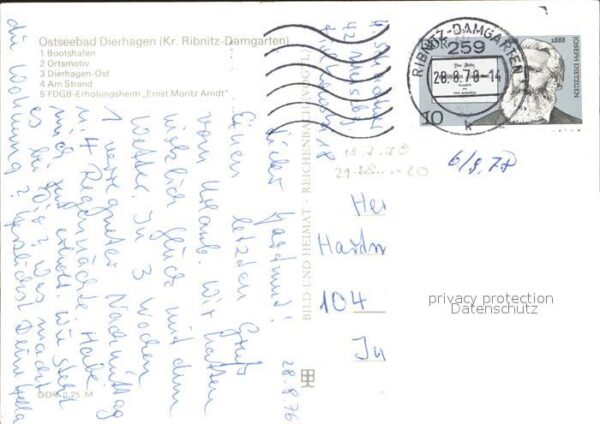 Ostseebad Dierhagen (Kr. Ribnitz-Damgarten)
1 Bootshafen
2 Ortsmotiv
3 Dierhagen-Ost
4 Am Strand
5 FDGB-Erholungsheim „Ernst Moritz Arndt"
DDR 0,25 M
BILD UND HEIMAT · REICHENBACH (VOGTL)
RIBNITZ-DAMGARTEN
259
28.8.78-14
k
DDR
10
1888
JOSEPH DIETZGEN
13.7.78
6/9.78
28.8.76
Lieber Hartmut!
Einen letzten Gruß
vom Urlaub. Wir hatten
wirklich Glück mit dem
Wetter. In 3 Wochen
1 verregneter Nachmittag
u. 4 Regennächte. Habe
mich gut erholt. Wie steht
es bei Dir? Was macht
die Wohnung? Herzlichst Deine
Her
104
Jn
privacy protection
Datenschutz